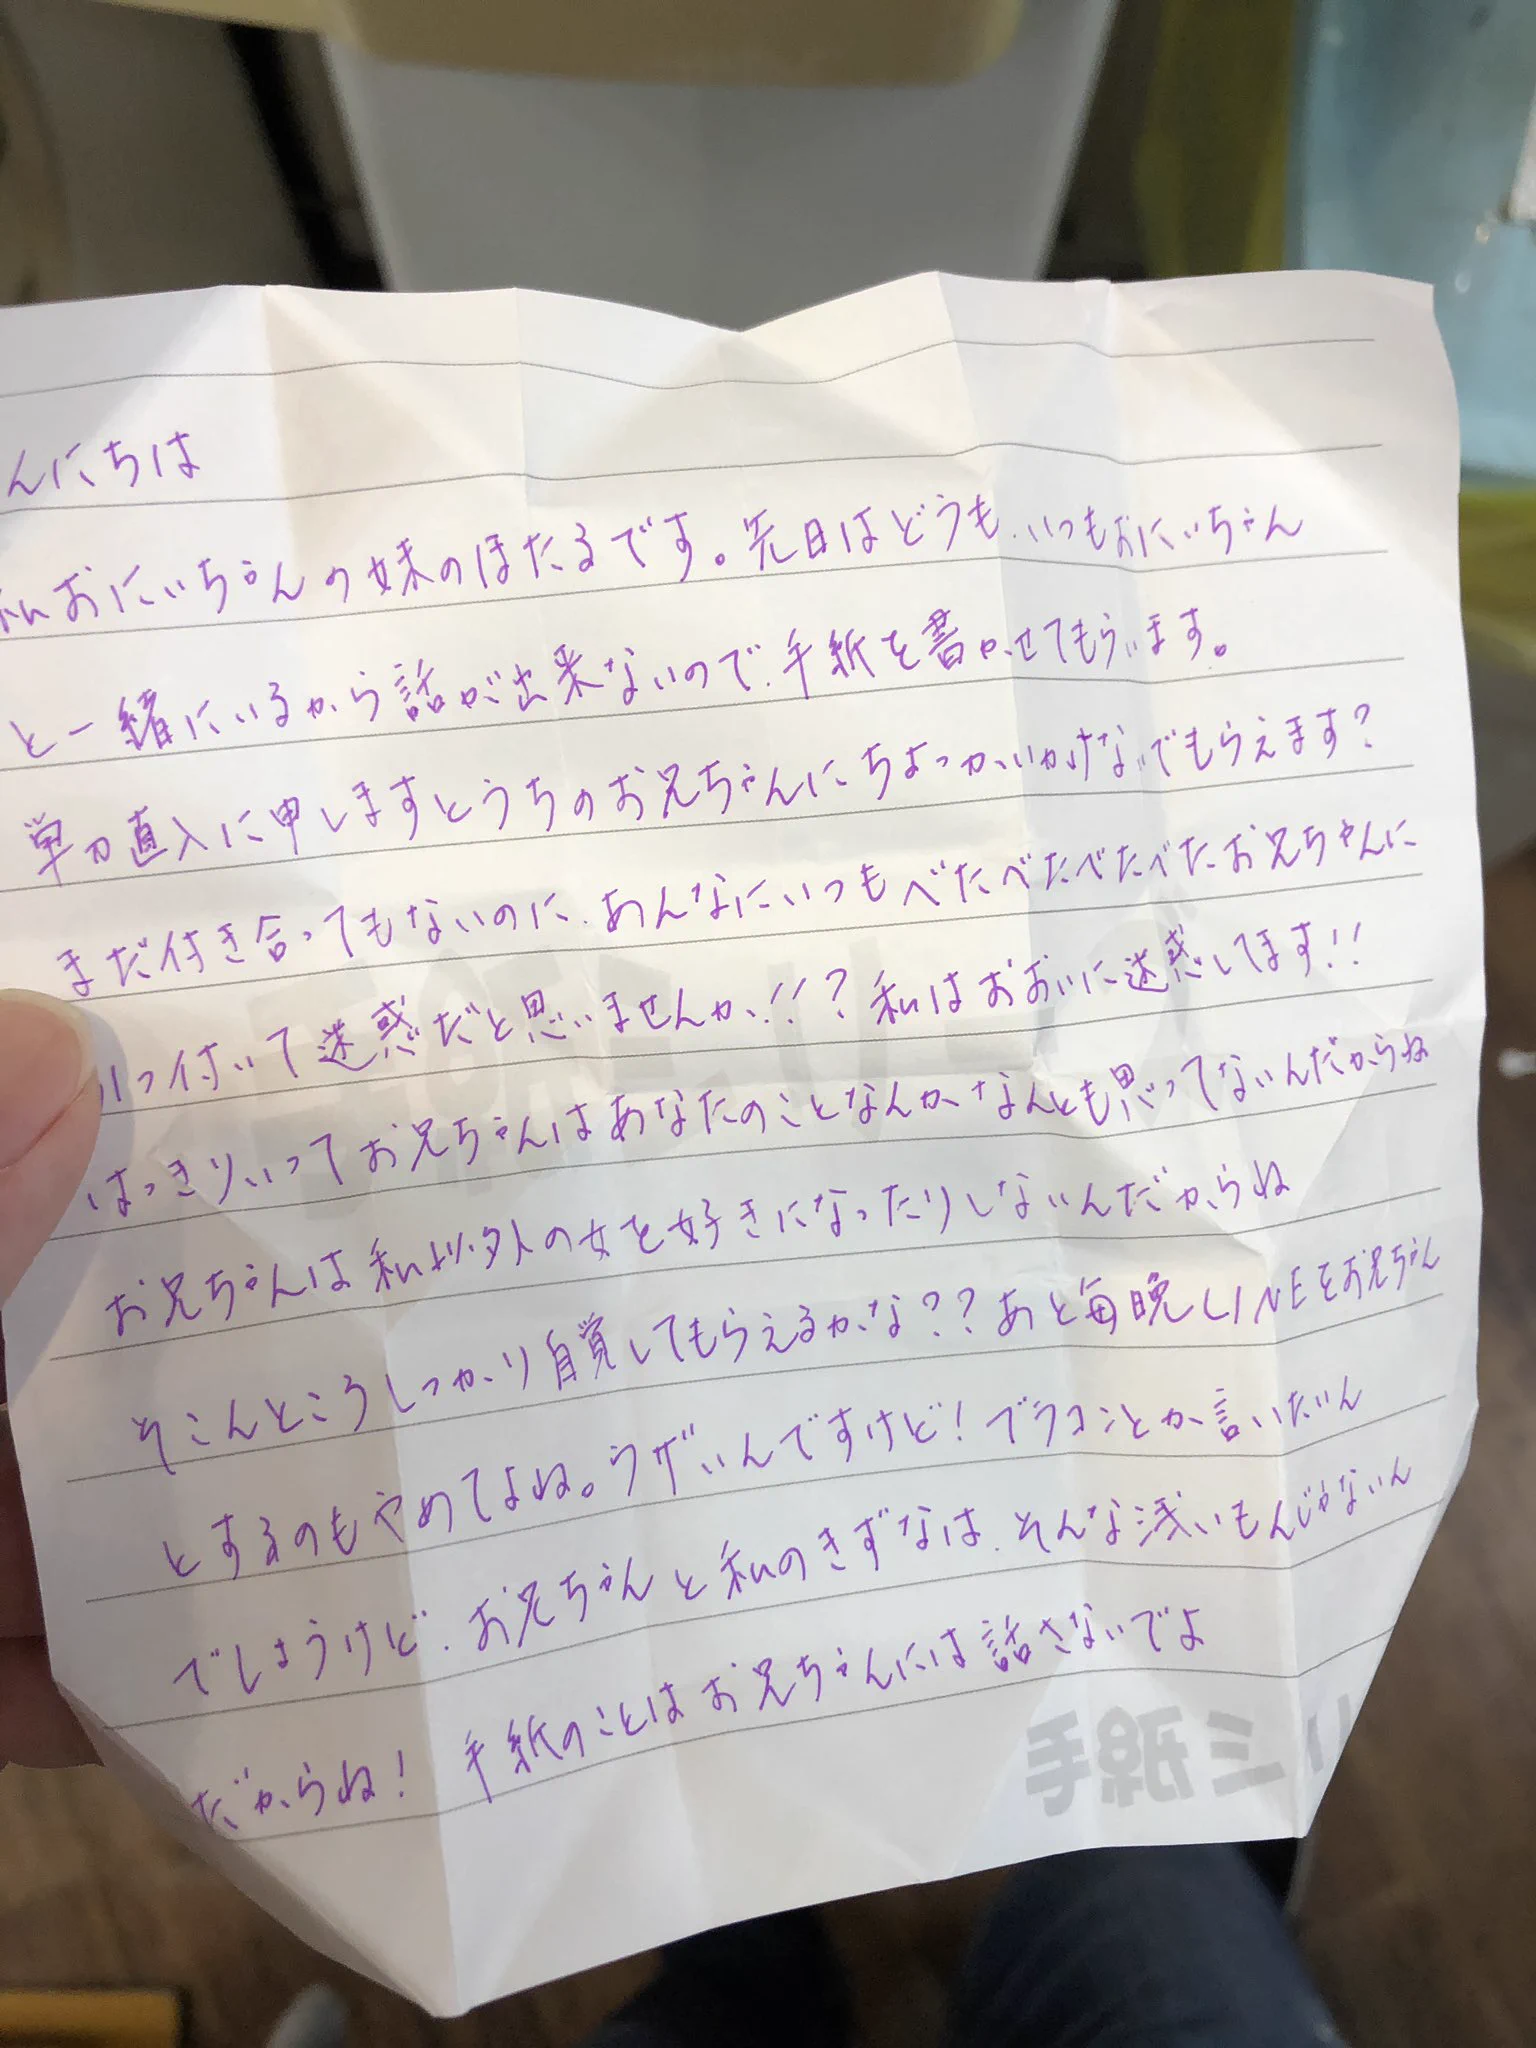 んにちは
私おにいちゃんの妹のほたるです。先日はどうも、いつもおにいちゃん
と一緒にいるから話が出来ないので、手紙を書かせてもらいます。
単刀直入に申しますとうちのお兄ちゃんにちょっかいかけないでもらえます?
まだ付き合ってもないのに、あんなにいつもべたべたべたべたお兄ちゃんに
っ付いて迷惑だと思いませんか!!?私はおおいに迷惑してます!!
はっきりいってお兄ちゃんはあなたのことなんかなんとも思ってないんだからね
お兄ちゃんは私以外の女を好きになったりしないんだからね
そこんところしっかり自覚してもらえるかな??あと毎晩LINEをお兄ちゃん
とするのもやめてよね。ウザいんですけど!ブラコンとか言いだいん
でしょうけど、お兄ちゃんと私のきずなは、そんな浅いもんじゃないん
だからね! 手紙のことはお兄ちゃんには話さないでよ
手紙ミリ